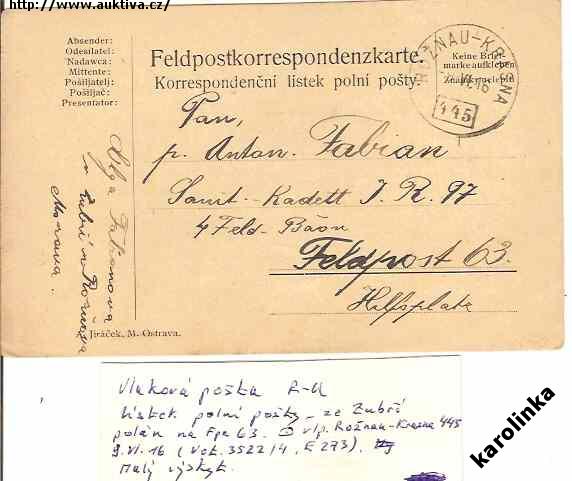 http://www.auktiva.cz/
Absender:
Odesílatel:
Nadawca:
Mittente:
Pošiljatelj:
Pošiljač:
Presentator:
Feldpostkorrespondenzkarte.
Korrespondenční lístek polní pošty.
Keine Brief-
marke aufkleben
ROŽNAU-KRASNA
VI. 16
445
Pan,
p. Anton. Fabian
Sanit-Kadett I. R. 97
4 Feld-Baon
Feldpost 63.
Hilfsplatz
Olga Fabianova
Zubří
Morava.
A. Jiráček, M. Ostrava.
Vlaková pošta R-U
Lístek polní pošty ze Zubří
polán na Fpa 63. vlp. Rožnau-Krasna 445
9. VI. 16 (Vot. 3522/4, E 273).
Malý výskyt.
karolinka